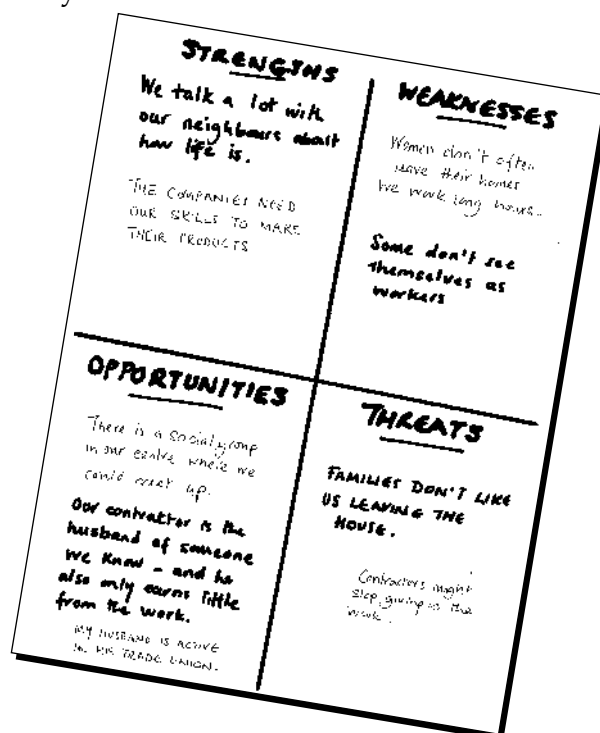 STRENGTHS
We talk a lot with
our neighbours about
how life is.
THE COMPANIES NEED
OUR SKILLS TO MAKE
THEIR PRODUCTS
WEAKNESSES
Women don't often
leave their homes
We work long hours..
Some don't see
themselves as
workers
OPPORTUNITIES
There is a social group
in our centre where we
could meet up.
Our contractor is the
husband of someone
we know - and he
also only earns little
from the work.
MY HUSBAND IS ACTIVE
IN HIS TRADE UNION.
THREATS
FAMILIES DON'T LIKE
US LEAVING THE
HOUSE.
Contractors might
stop giving us the
work.